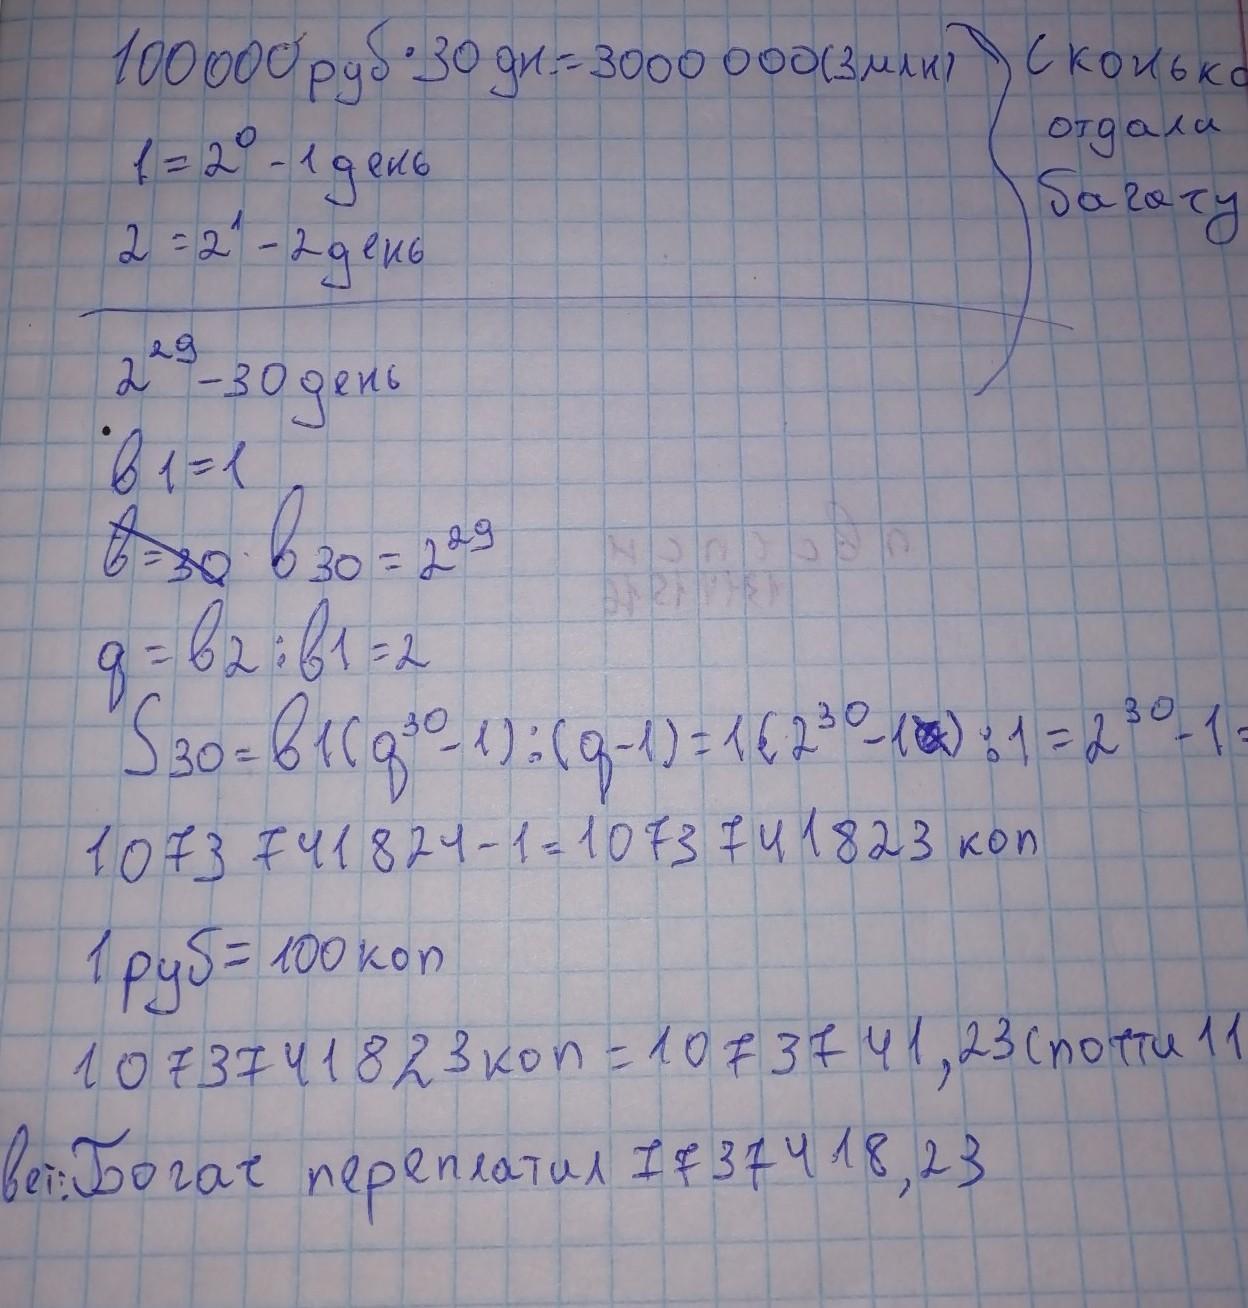 100000 руб·30дн.=3000 000(3млн) Сколько
отдали
багачу
1=2⁰-1день
2=2¹-2день
2²⁹-30день
b1=1
b=30 b30=2²⁹
q=b2:b1=2
S30=b1(q³⁰-1):(q-1)=1(2³⁰-1):1=2³⁰-1=
1073 741824-1=1073741823 коп
1руб=100коп
1073741823коп=1073741,23(почти 11
вет:Богач переплатил 7737418,23